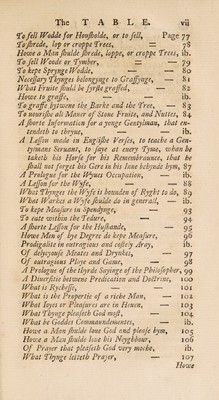 The TABLE. vii
To sell Wodde for Houſholde, or to ſell, Page 77
To ſhrede, lop or croppe Trees, — 78
Howe a Man ſhulde ſhrede, loppe, or croppe Trees, ib.
To ſell Woode or Tymber, — — 79
To kepe Sprynge Wodde, — — 80
Neceſſary Thynges belongynge to Graffynge, — 81
What Fruite ſhuld be fyrſte graffed, — 82
Howe to graffe, — — ib.
To graffe bytwene the Barke and the Tree, — 83
To nouriſhe all Maner of Stone Fruite, and Nuttes, 84
A ſhorte Information for a yonge Gentylman, that en-
tendeth to thryve, — — ib.
A Leſſon made in Englyſhe Verſes, to teache a Gen-
tylmans Servant, to ſaye at every Tyme, whan he
taketh his Horſe for his Remembraunce, that he
ſhall not forget his Gere in his Inne behynde hym, 87
A Prologue for the Wyues Occupation, ib.
A Leſſon for the Wyfe, — — 88
What Thynges the Wyfe is bounden of Ryght to do, 89
What Warkes a Wyfe ſhulde do in generall, — ib.
To kepe Meaſure in Spendynge, 93
To eate within the Tedure, — 94
A ſhorte Leſſon for the Huſbande, — 95
Howe Men of hye Degree do kepe Meaſure, 96
Prodigalite in outragious and coſtely Aray, ib.
Of delycyouſe Meates and Drynkes, — 97
Of outragious Playe and Game, — 98
A Prologue of the thyrde Sayinge of the Philoſopher, 99
A Diverſitie betwene Predication and Doctrine, 100
What is Rycheſſe, — — 101
What is the Propertie of a riche Man, — 102
What Ioyes or Pleaſures are in Heuen, — 103
What Thynge pleaſeth God moſt, 104
What be Goddes Commaundementes, — ib.
Howe a Man ſhulde loue God and pleaſe hym, 105
Howe a Man ſhulde loue his Neyghbour, 106
Of Prayer that pleaſeth God very moche, ib.
What Thynge letteth Prayer, — 107
Howe